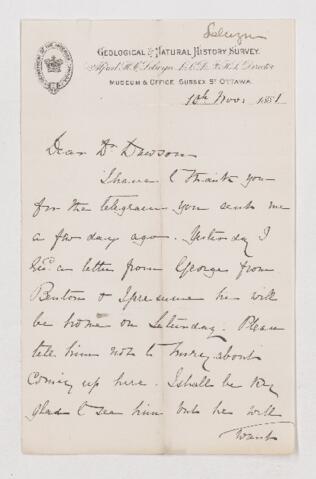 Selwyn
GEOLOGICAL & NATURAL HISTORY SURVEY.
Alfred R. C. Selwyn, L.L.D. F.R.S. Director
MUSEUM & OFFICE, SUSSEX ST OTTAWA.
10th Novr 1881
Dear Dr Dawson
I have to thank you
for the telegram you sent me
a few days ago. Yesterday I
recd a letter from George from
Benton & I presume he will
be home on Saturday. Please
tell him not to hurry about
coming up here. I shall be very
glad to see him but he will
want